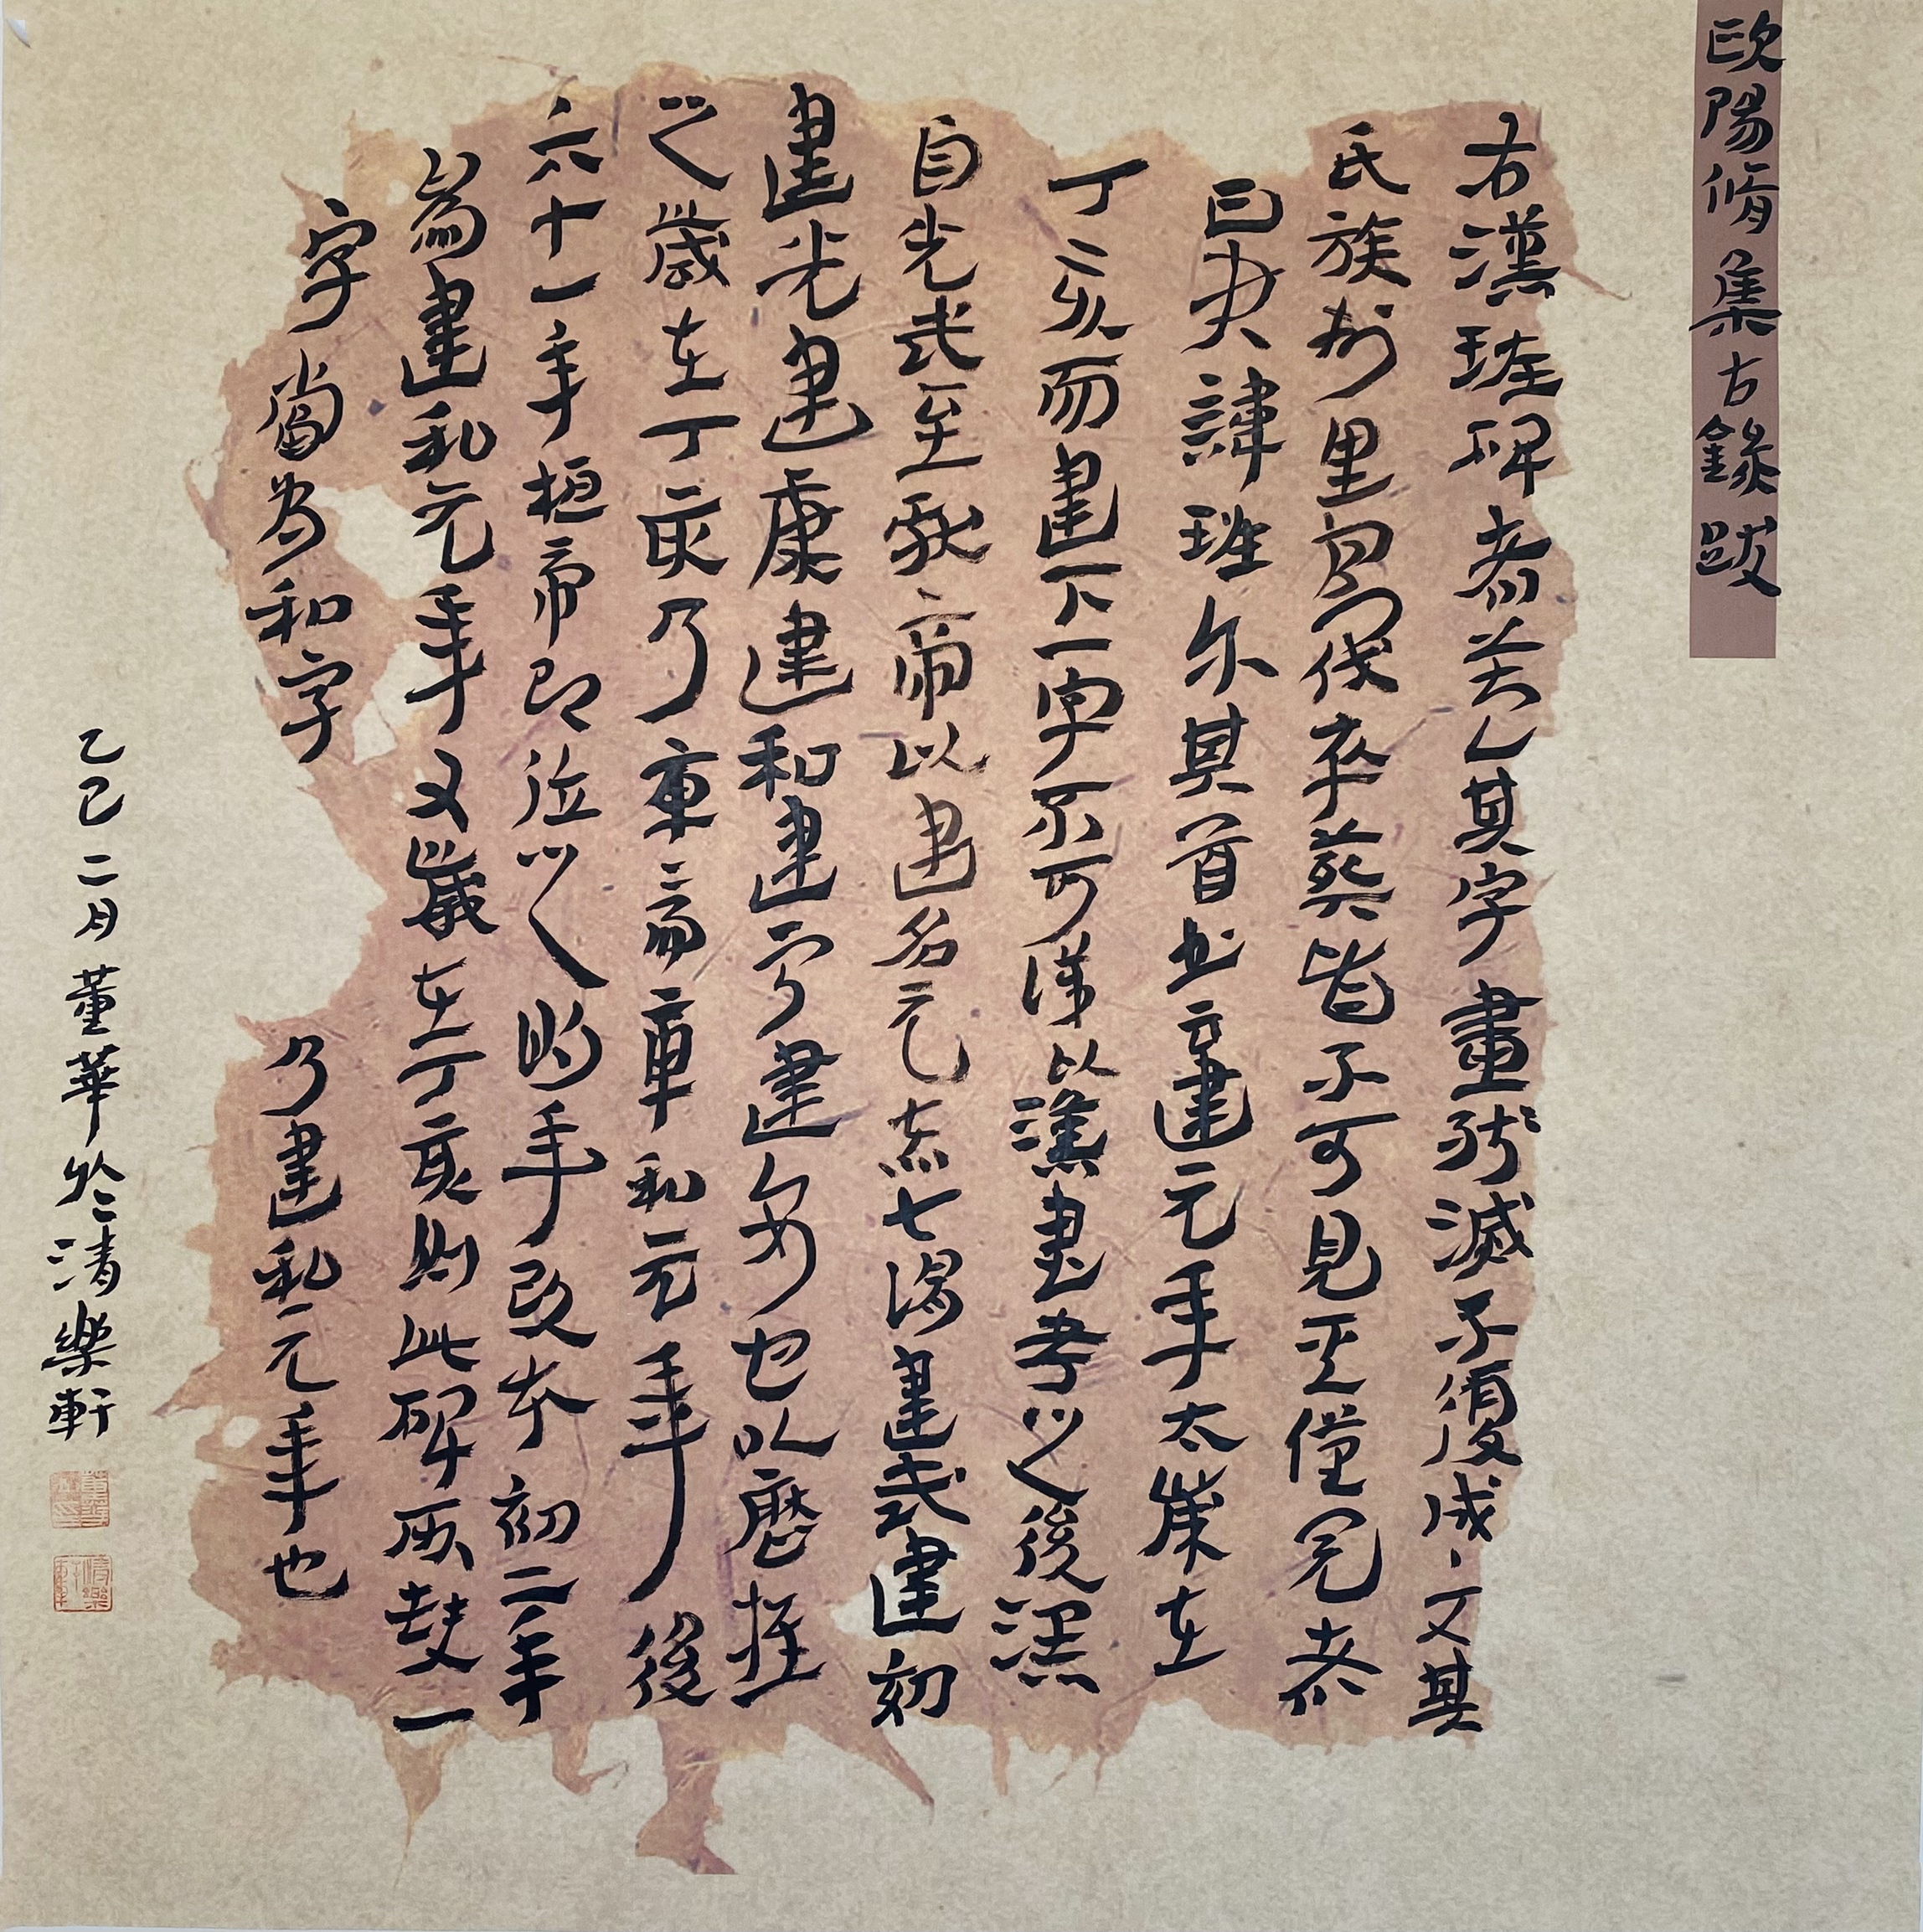 歐陽脩集古錄跋
右漢班碑者蓋其字畫殘滅不復成文其
氏族州里官伐卒葬皆不可見其僅見者
曰君諱班尔其首書云建元年太歲在
丁亥而建下一字不可識以漢書考之後漢
自光武至獻帝以建名元者七謂建武建初
建光建康建和建寧建安也以歷推
之歲在丁亥乃章帝章和元年後
六十一年桓帝即位之明年改本初二年
為建和元年又歲在丁亥則此碑所缺一
字當為和字 乃建和元年也
乙巳二月董華於清樂軒